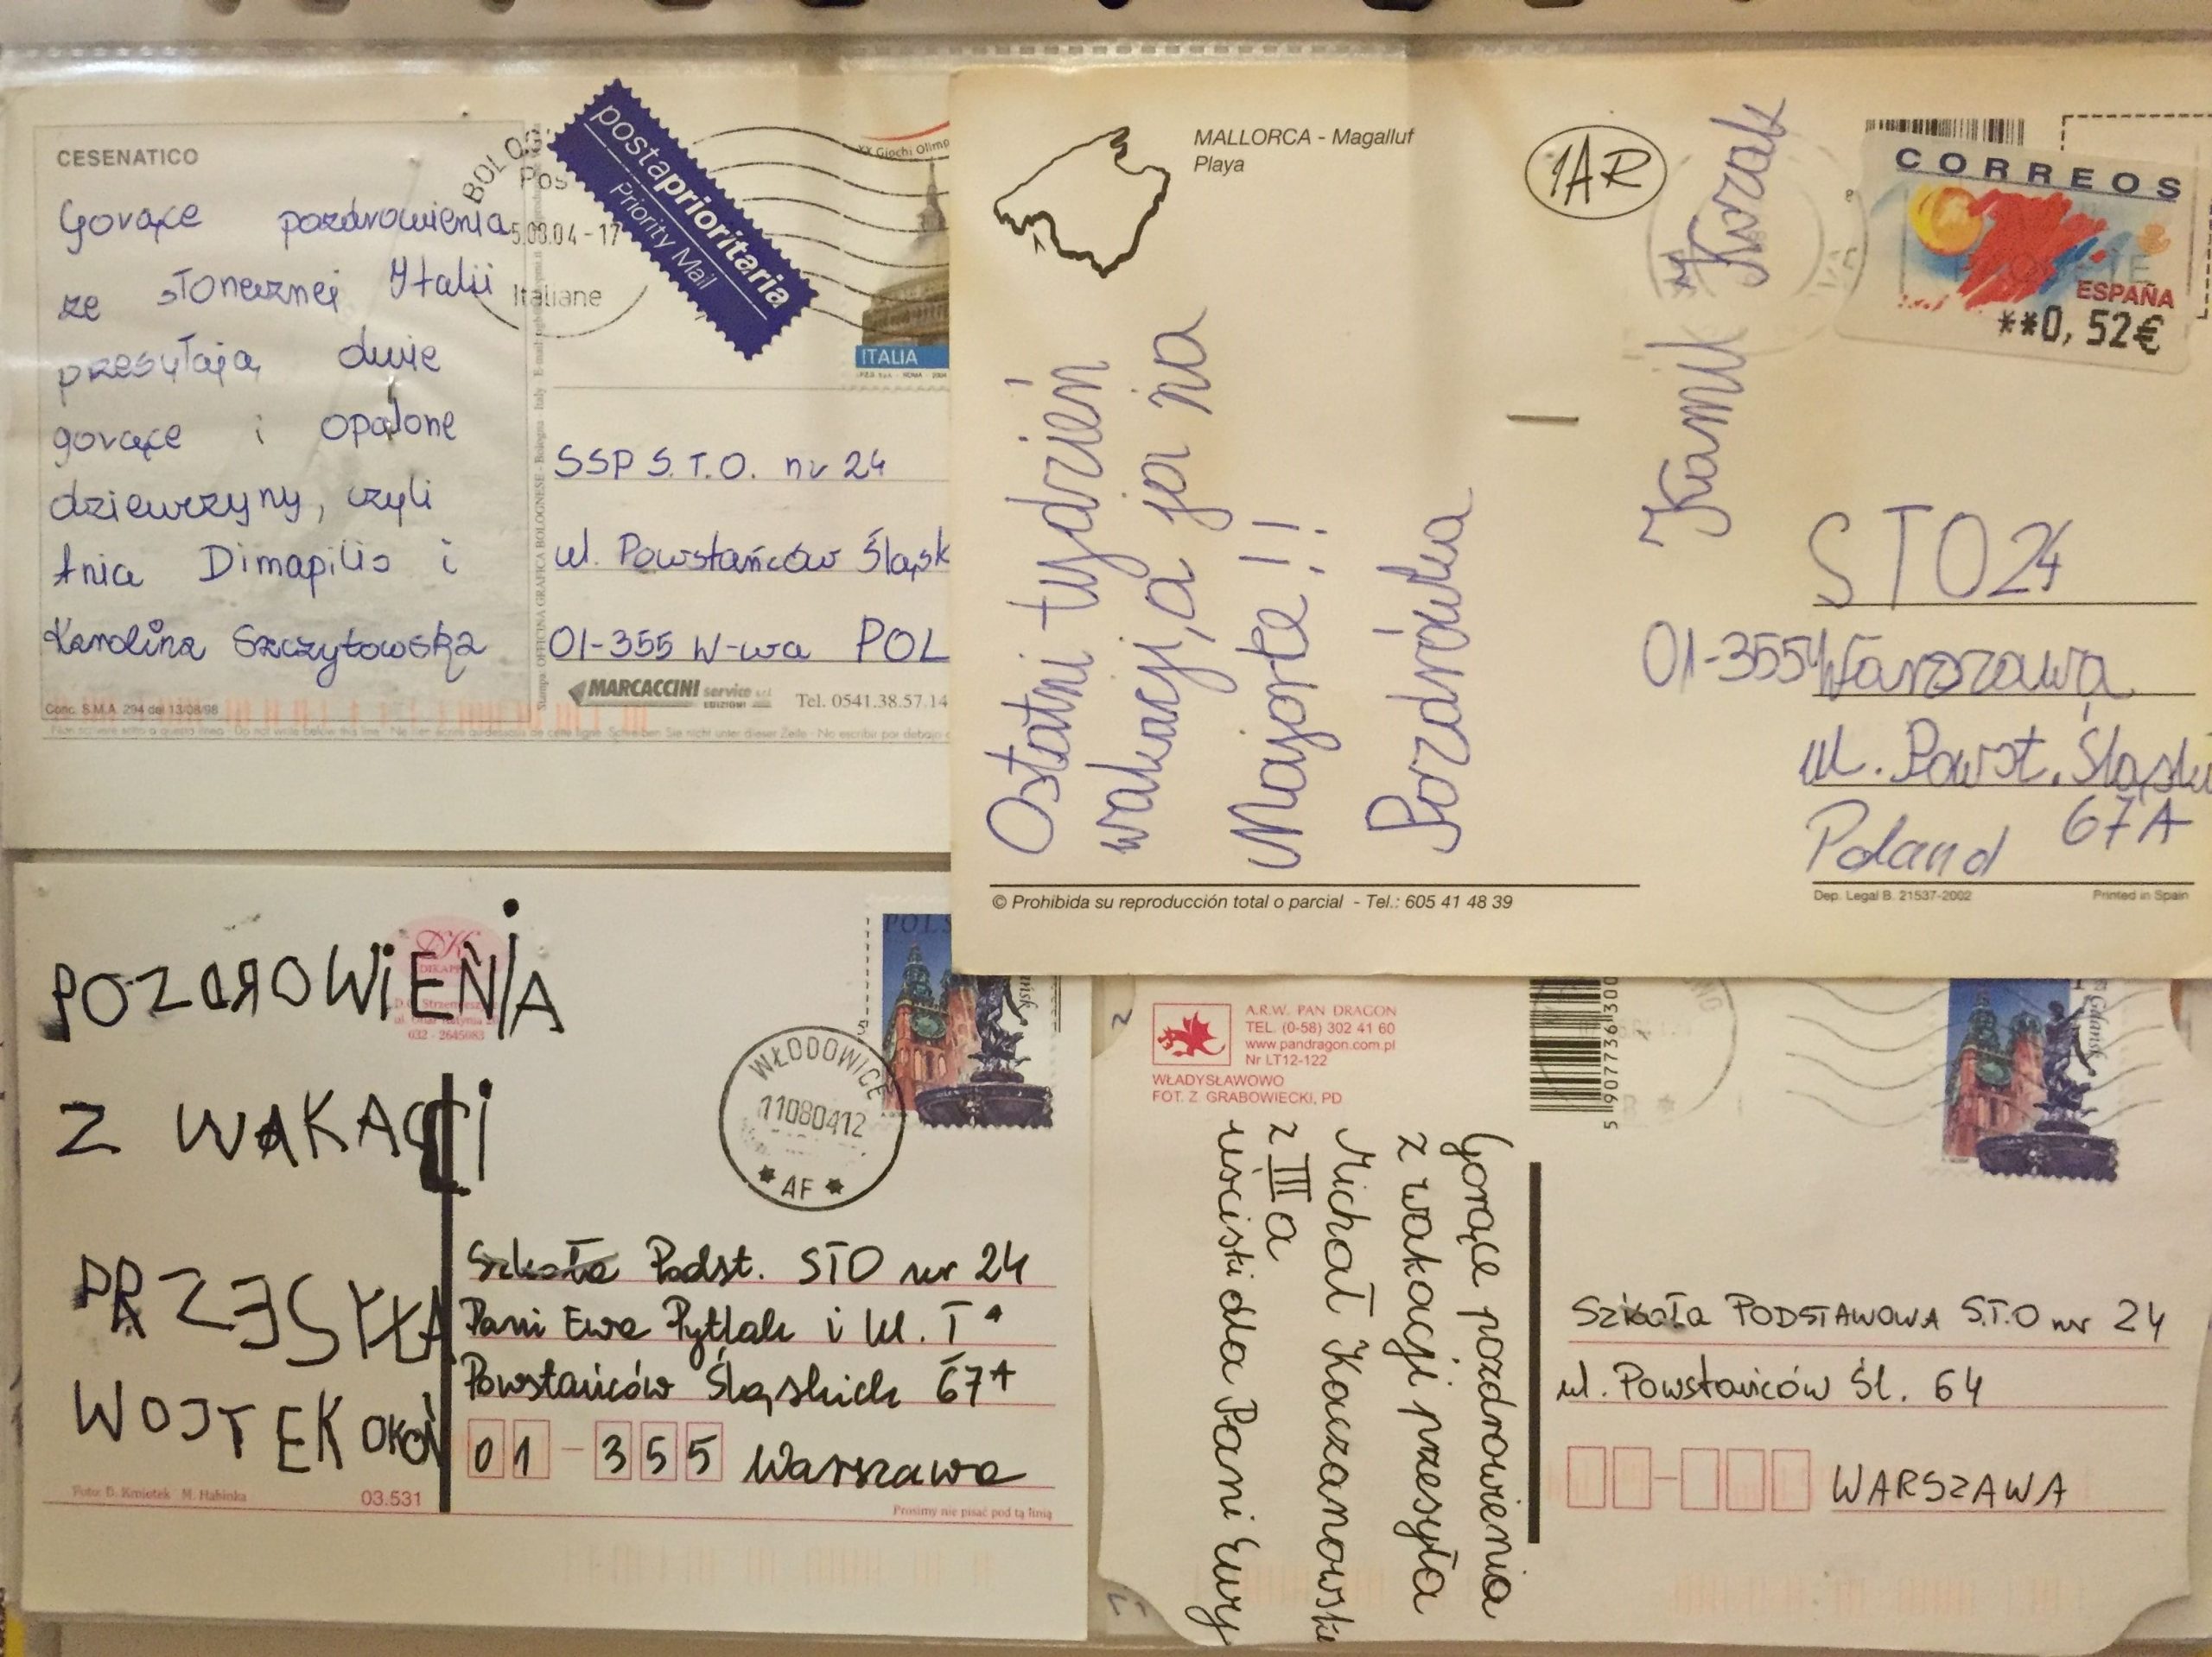 CESENATICO
Gorące pozdrowienia
ze słonecznej Italii
przesyłają dwie
gorące i opalone
dziewczyny, czyli
Ania Dimapilis i
Karolina Szczytowska
Conc. S.M.A. 294 del 13/08/98
Stampa: OFFICINA GRAFICA BOLOGNESE - Bologna - Italy
BOLOG
Pos
5.08.04-17
Italiane
postaprioritaria
Priority Mail
XX Giochi Olimp
ITALIA
SSP S.T.O. nr 24
ul. Powstańców Śląsk
01-355 W-wa POL
MARCACCINI service s.r.l.
EDIZIONI
Tel. 0541.38.57.14
MALLORCA - Magalluf
Playa
1AR
CORREOS
ESPAÑA
**0,52€
Ostatni tydzień
wakacji, a ja na
Majorte!!
Pozdrówka
Kamil Kozak
STO24
01-355 Warszawa
ul. Powst. Śląski
67A
Poland
© Prohibida su reproducción total o parcial - Tel.: 605 41 48 39
Dep. Legal B. 21537-2002
Printed in Spain
POZDROWIENIA
Z WAKACJI
PRZESYŁA
WOJTEK OKOŃ
DK
032 - 2645083
POLS
WŁODOWICE
11080412
AF
Szkoła Podst. STO nr 24
Pani Ewa Pytlak i kl. Ia
Powstańców Śląskich 67A
01-355 Warszawa
03.531
Prosimy nie pisać pod tą linią
A.R.W. PAN DRAGON
TEL. (0-58) 302 41 60
www.pandragon.com.pl
Nr LT12-122
WŁADYSŁAWOWO
FOT. Z GRABOWIECKI, PD
5 907736 300
Gdańsk
Gorące pozdrowienia
z wakacji przesyła
Michał Koczanowski
z III a
uściski dla Pani Ewy
Szkoła PODSTAWOWA S.T.O nr 24
ul. Powstańców Śl. 64
WARSZAWA